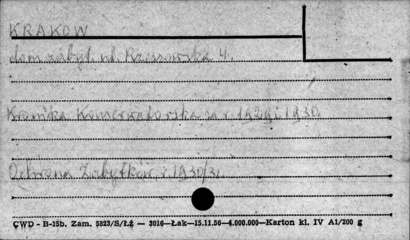 KRAKÓW
dom zabyt. ul. Rzeszowska 4.
Kronika Konserwatorska za r. 1929 i 1930
Ochrona Zabytków r. 1930/31.
ÇWD - B-15b. Zam. 5823/S/ŁŻ — 3016—Łak—15.11.56—4.000.000—Karton kl. IV A1/200 g